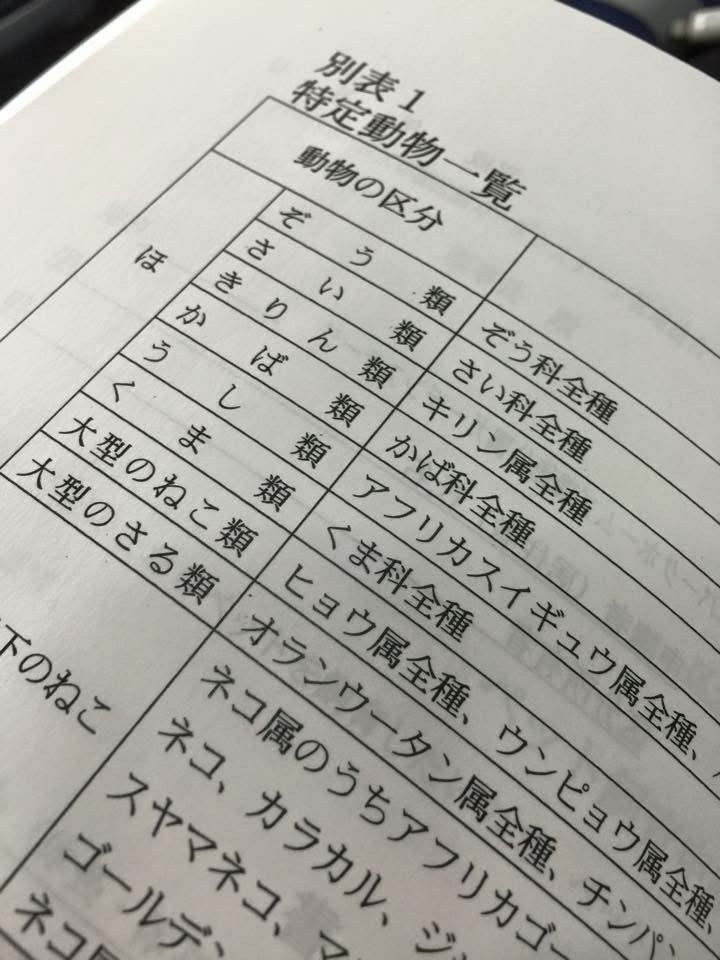 別表1
特定動物一覧
動物の区分
ほ
ぞう類
ぞう科全種
さい類
さい科全種
きりん類
キリン属全種
かば類
かば科全種
うし類
アフリカスイギュウ属全種、
くま類
くま科全種
大型のねこ類
ヒョウ属全種、ウンピョウ属全種、
大型のさる類
オランウータン属全種、チンパン
下のねこ
ネコ属のうちアフリカゴー
ネコ、カラカル、ジ
スヤマネコ、マ
ゴールデン
ネコ属